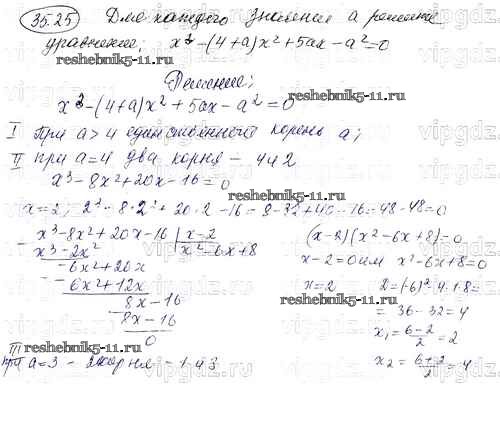 35.25 Для каждого значения a решите
уравнение: x³-(4+a)x²+5ax-a²=0
reshebnik5-11.ru
Решение:
x³-(4+a)x²+5ax-a²=0
reshebnik5-11.ru
I При a>4 единственный корень a;
II при a=4 два корня - 4 и 2
x³-8x²+20x-16=0
x=2, 2³-8·2²+20·2-16=8-32+40-16=48-48=0
x³-8x²+20x-16 | x-2
x³-2x² x²-6x+8
-6x²+20x
-6x²+12x
8x-16
8x-16
0
(x-2)(x²-6x+8)=0
x-2=0 или x²-6x+8=0
x=2 D=(-6)²-4·1·8=
= 36-32=4
x₁=6-2/2=2
x₂=6+2/2=4
reshebnik5-11.ru
III
при a=3 - 2 корня - 1 и 3
reshebnik5-11.ru